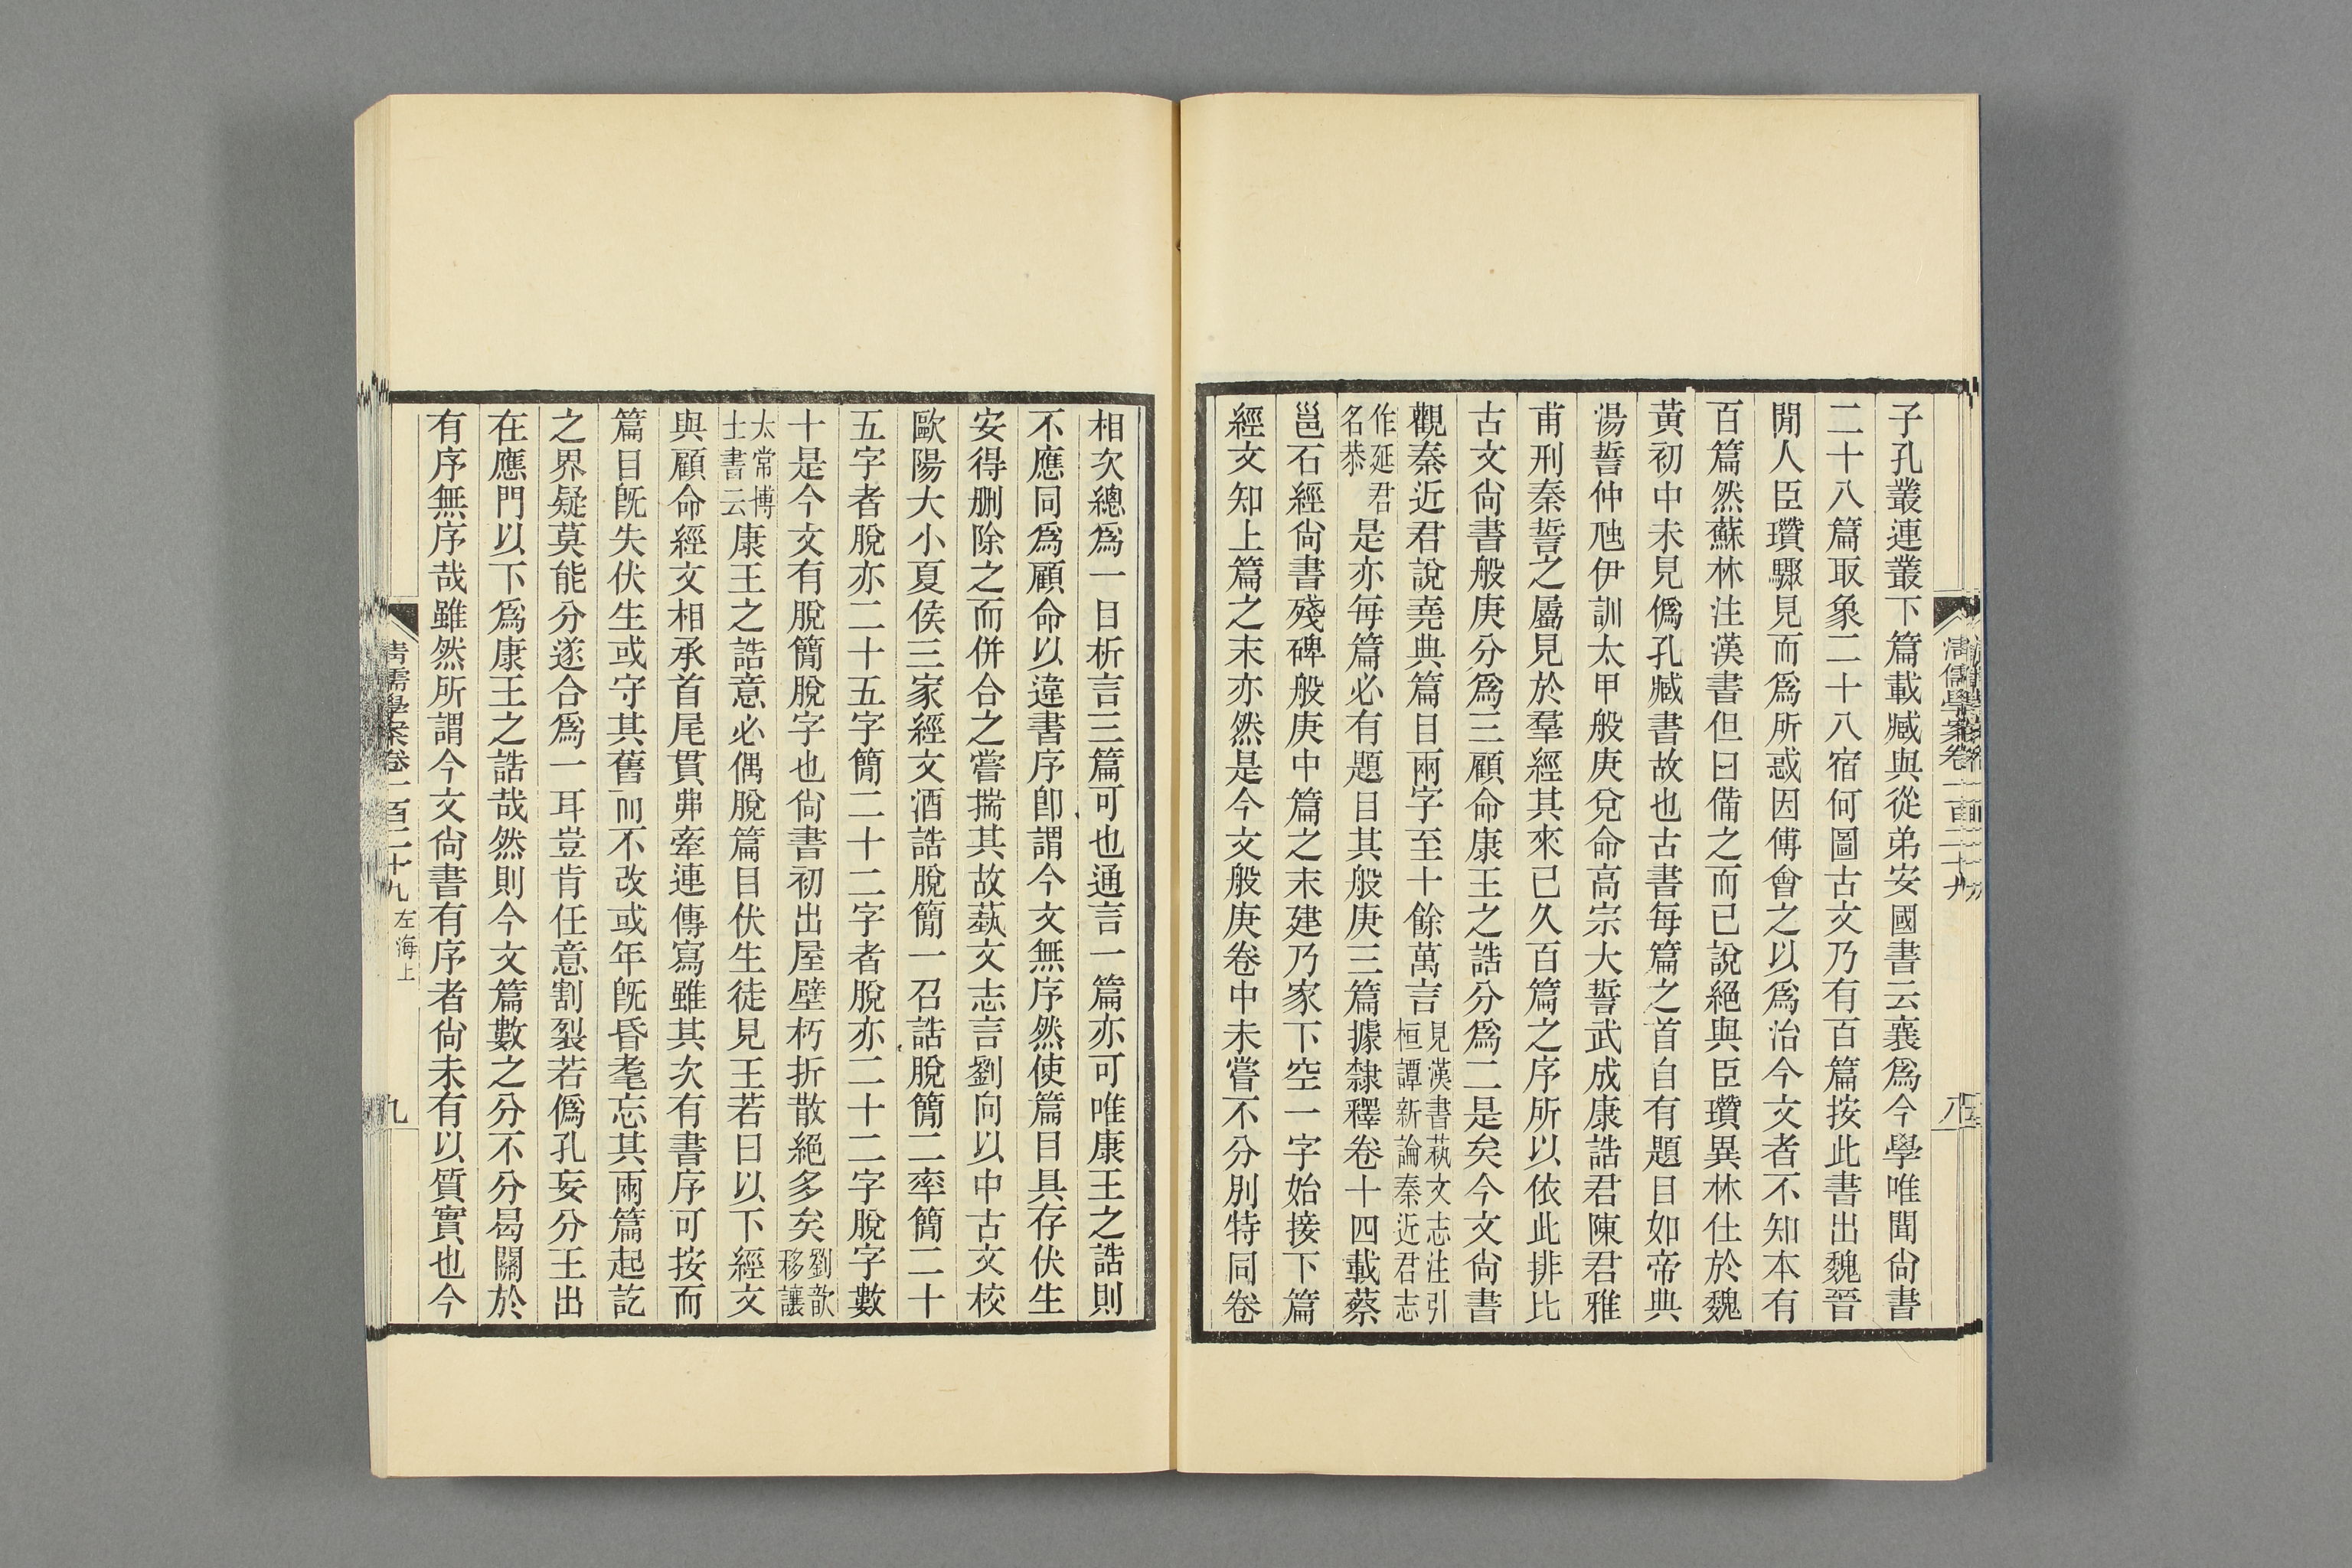 子孔叢連叢下篇載臧與從弟安國書云襄爲今學唯聞尙書
二十八篇取象二十八宿何圖古文乃有百篇按此書出魏晉
閒人臣瓚驟見而爲所惑因傅會之以爲治今文者不知本有
百篇然蘇林注漢書但曰備之而已說絕與臣瓚異林仕於魏
黃初中未見僞孔臧書故也古書每篇之首自有題目如帝典
湯誓仲虺伊訓太甲般庚兌命高宗大誓武成康誥君陳君雅
甫刑秦誓之屬見於羣經其來已久百篇之序所以依此排比
古文尙書般庚分爲三顧命康王之誥分爲二是矣今文尙書
觀秦近君說堯典篇目兩字至十餘萬言見漢書蓺文志注引桓譚新論秦近君志
作延君名恭是亦每篇必有題目其般庚三篇據隸釋卷十四載蔡
邕石經尙書殘碑般庚中篇之末建乃家下空一字始接下篇
經文知上篇之末亦然是今文般庚卷中未嘗不分別特同卷
清儒學案卷一百二十九
八
相次總爲一目析言三篇可也通言一篇亦可唯康王之誥則
不應同爲顧命以違書序卽謂今文無序然使篇目具存伏生
安得刪除之而併合之嘗揣其故蓺文志言劉向以中古文校
歐陽大小夏侯三家經文酒誥脫簡一召誥脫簡二率簡二十
五字者脫亦二十五字簡二十二字者脫亦二十二字脫字數
十是今文有脫簡脫字也尙書初出屋壁朽折散絕多矣劉歆移讓
太常博士書云康王之誥意必偶脫篇目伏生徒見王若曰以下經文
與顧命經文相承首尾貫弗牽連傳寫雖其次有書序可按而
篇目旣失伏生或守其舊而不改或年旣昏耄忘其兩篇起訖
之界疑莫能分遂合爲一耳豈肯任意割裂若僞孔妄分王出
在應門以下爲康王之誥哉然則今文篇數之分不分曷關於
有序無序哉雖然所謂今文尙書有序者尙未有以質實也今
清儒學案卷一百二十九 左海上
九